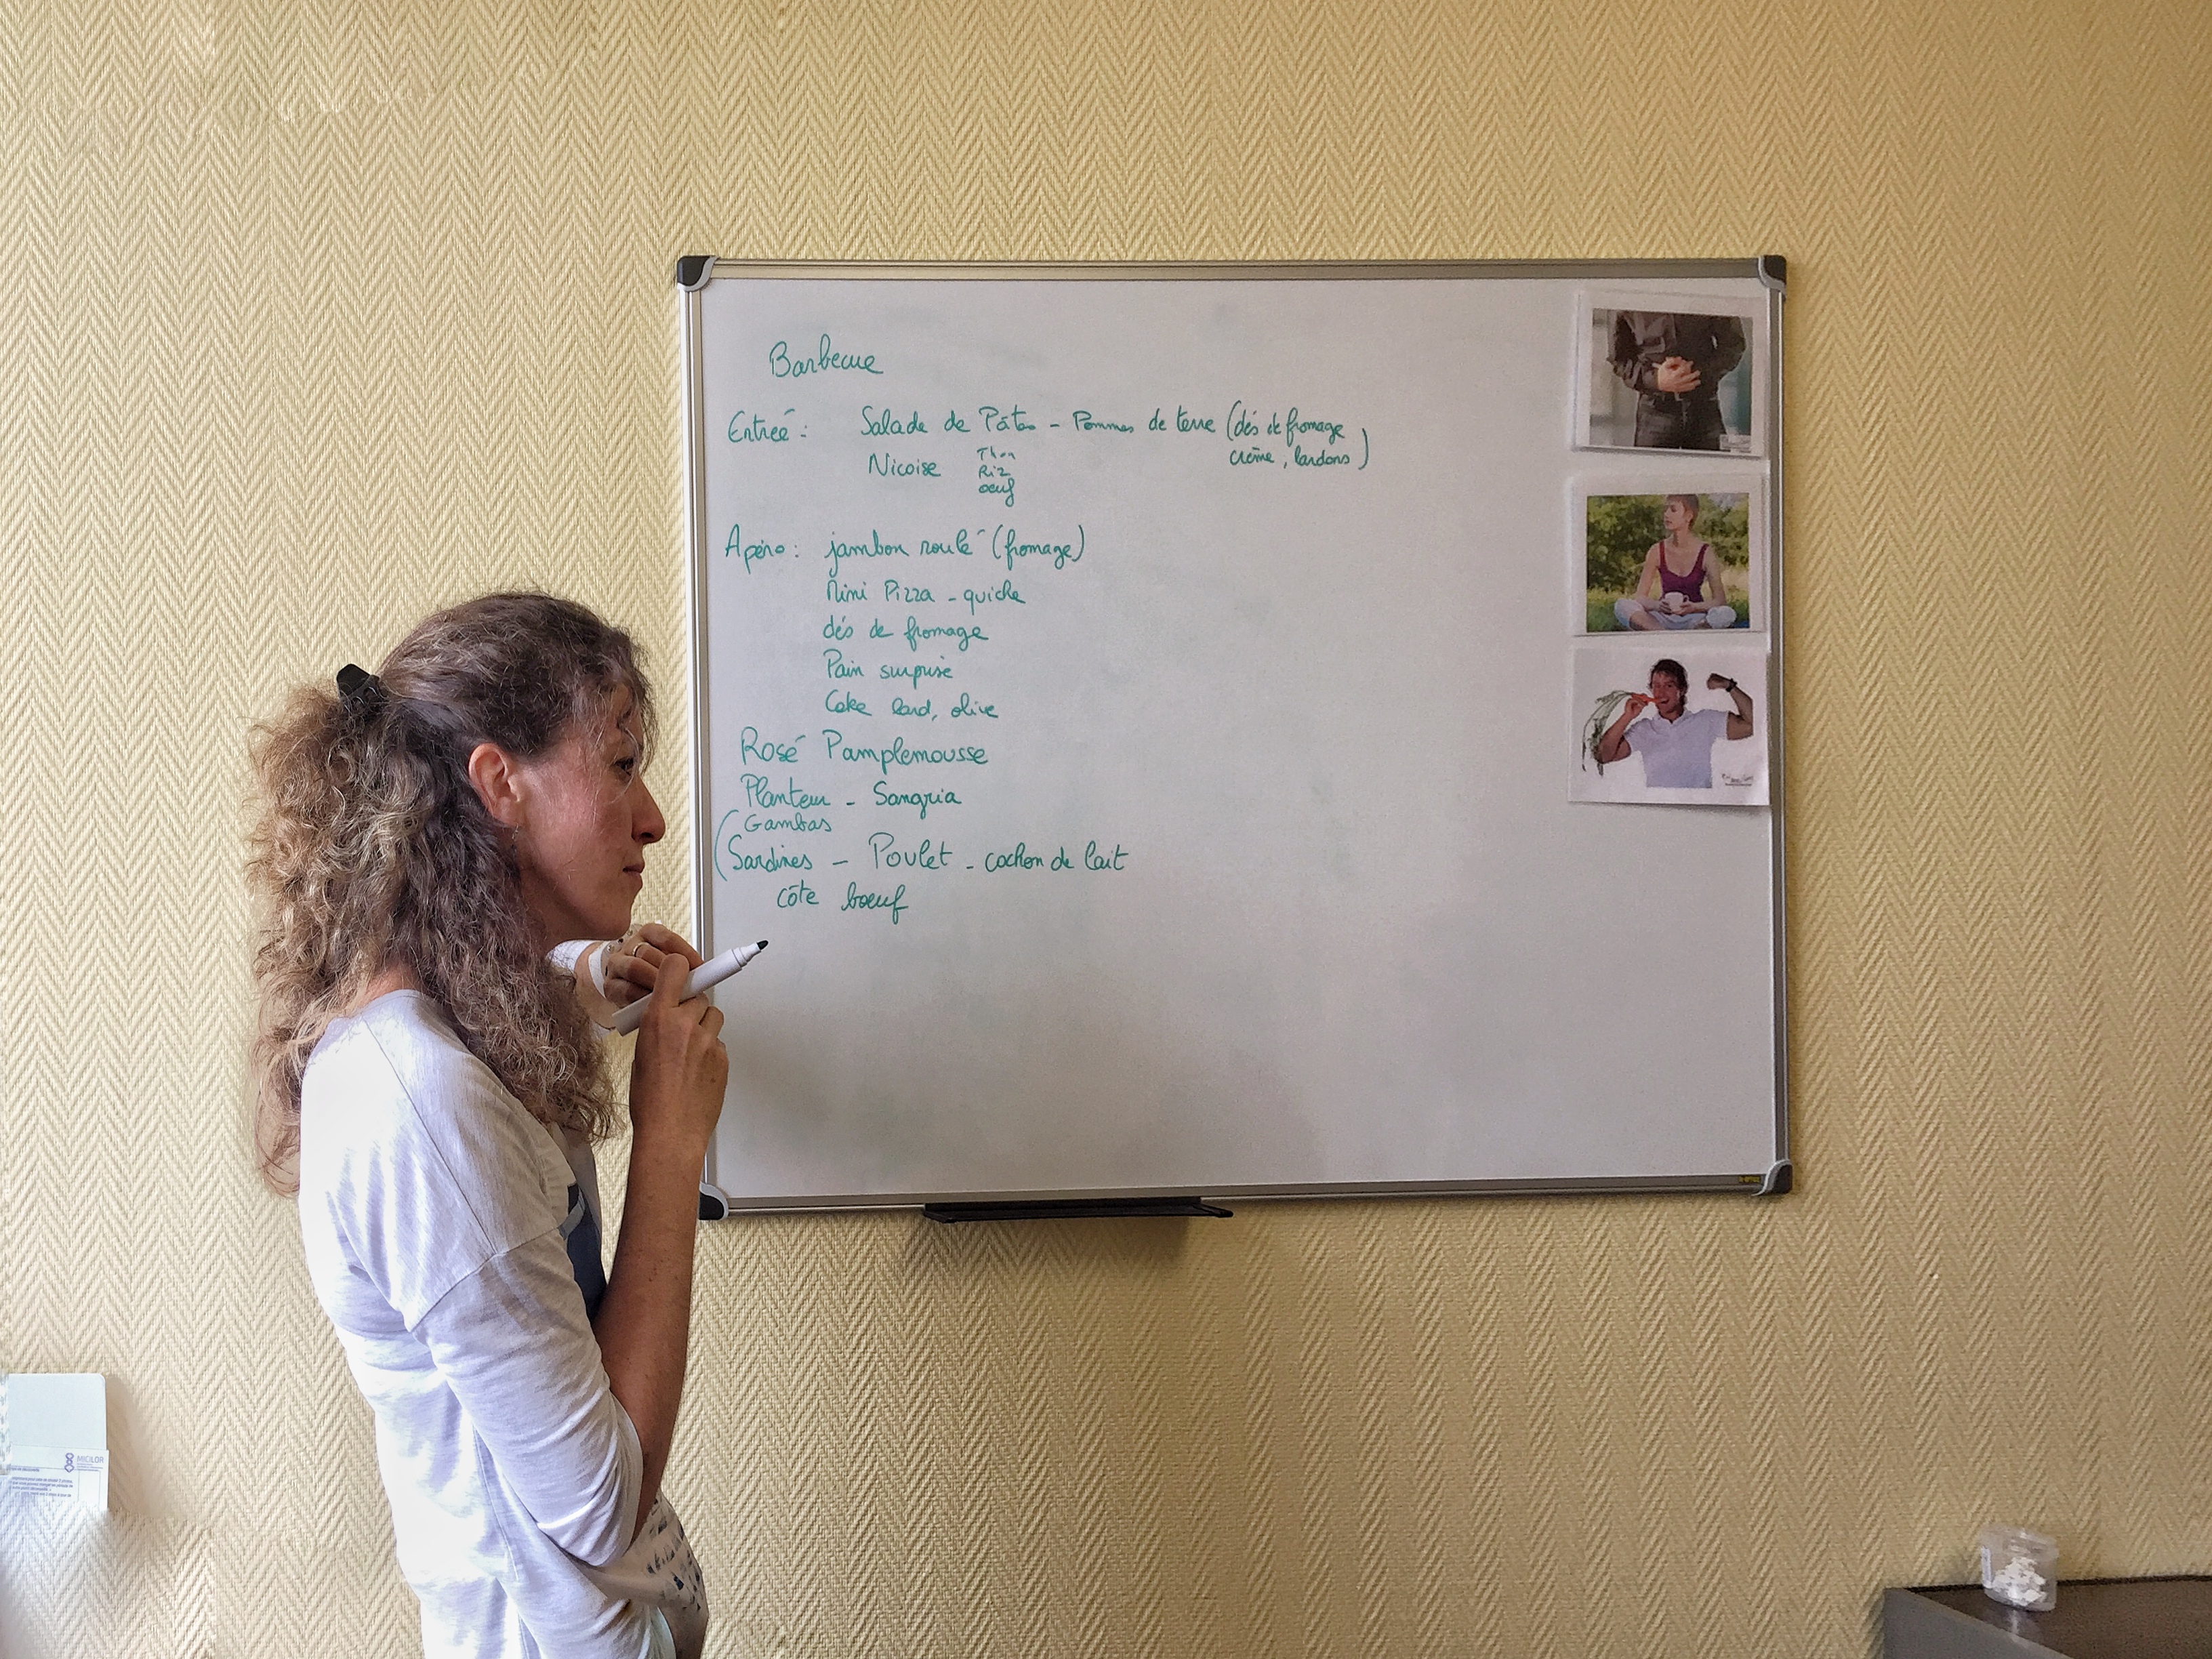 Barbecue
Entreé : Salade de Pâtes - Pommes de terre (dés de fromage
crème, lardons)
Nicoise Thon
Riz
oeuf
Apéro : jambon roulé (fromage)
Mini Pizza - quiche
dés de fromage
Pain surprise
Cake lard, olive
Rosé Pamplemousse
Planteur - Sangria
(Gambas
Sardines - Poulet - cochon de lait
côte boeuf
MICILOR